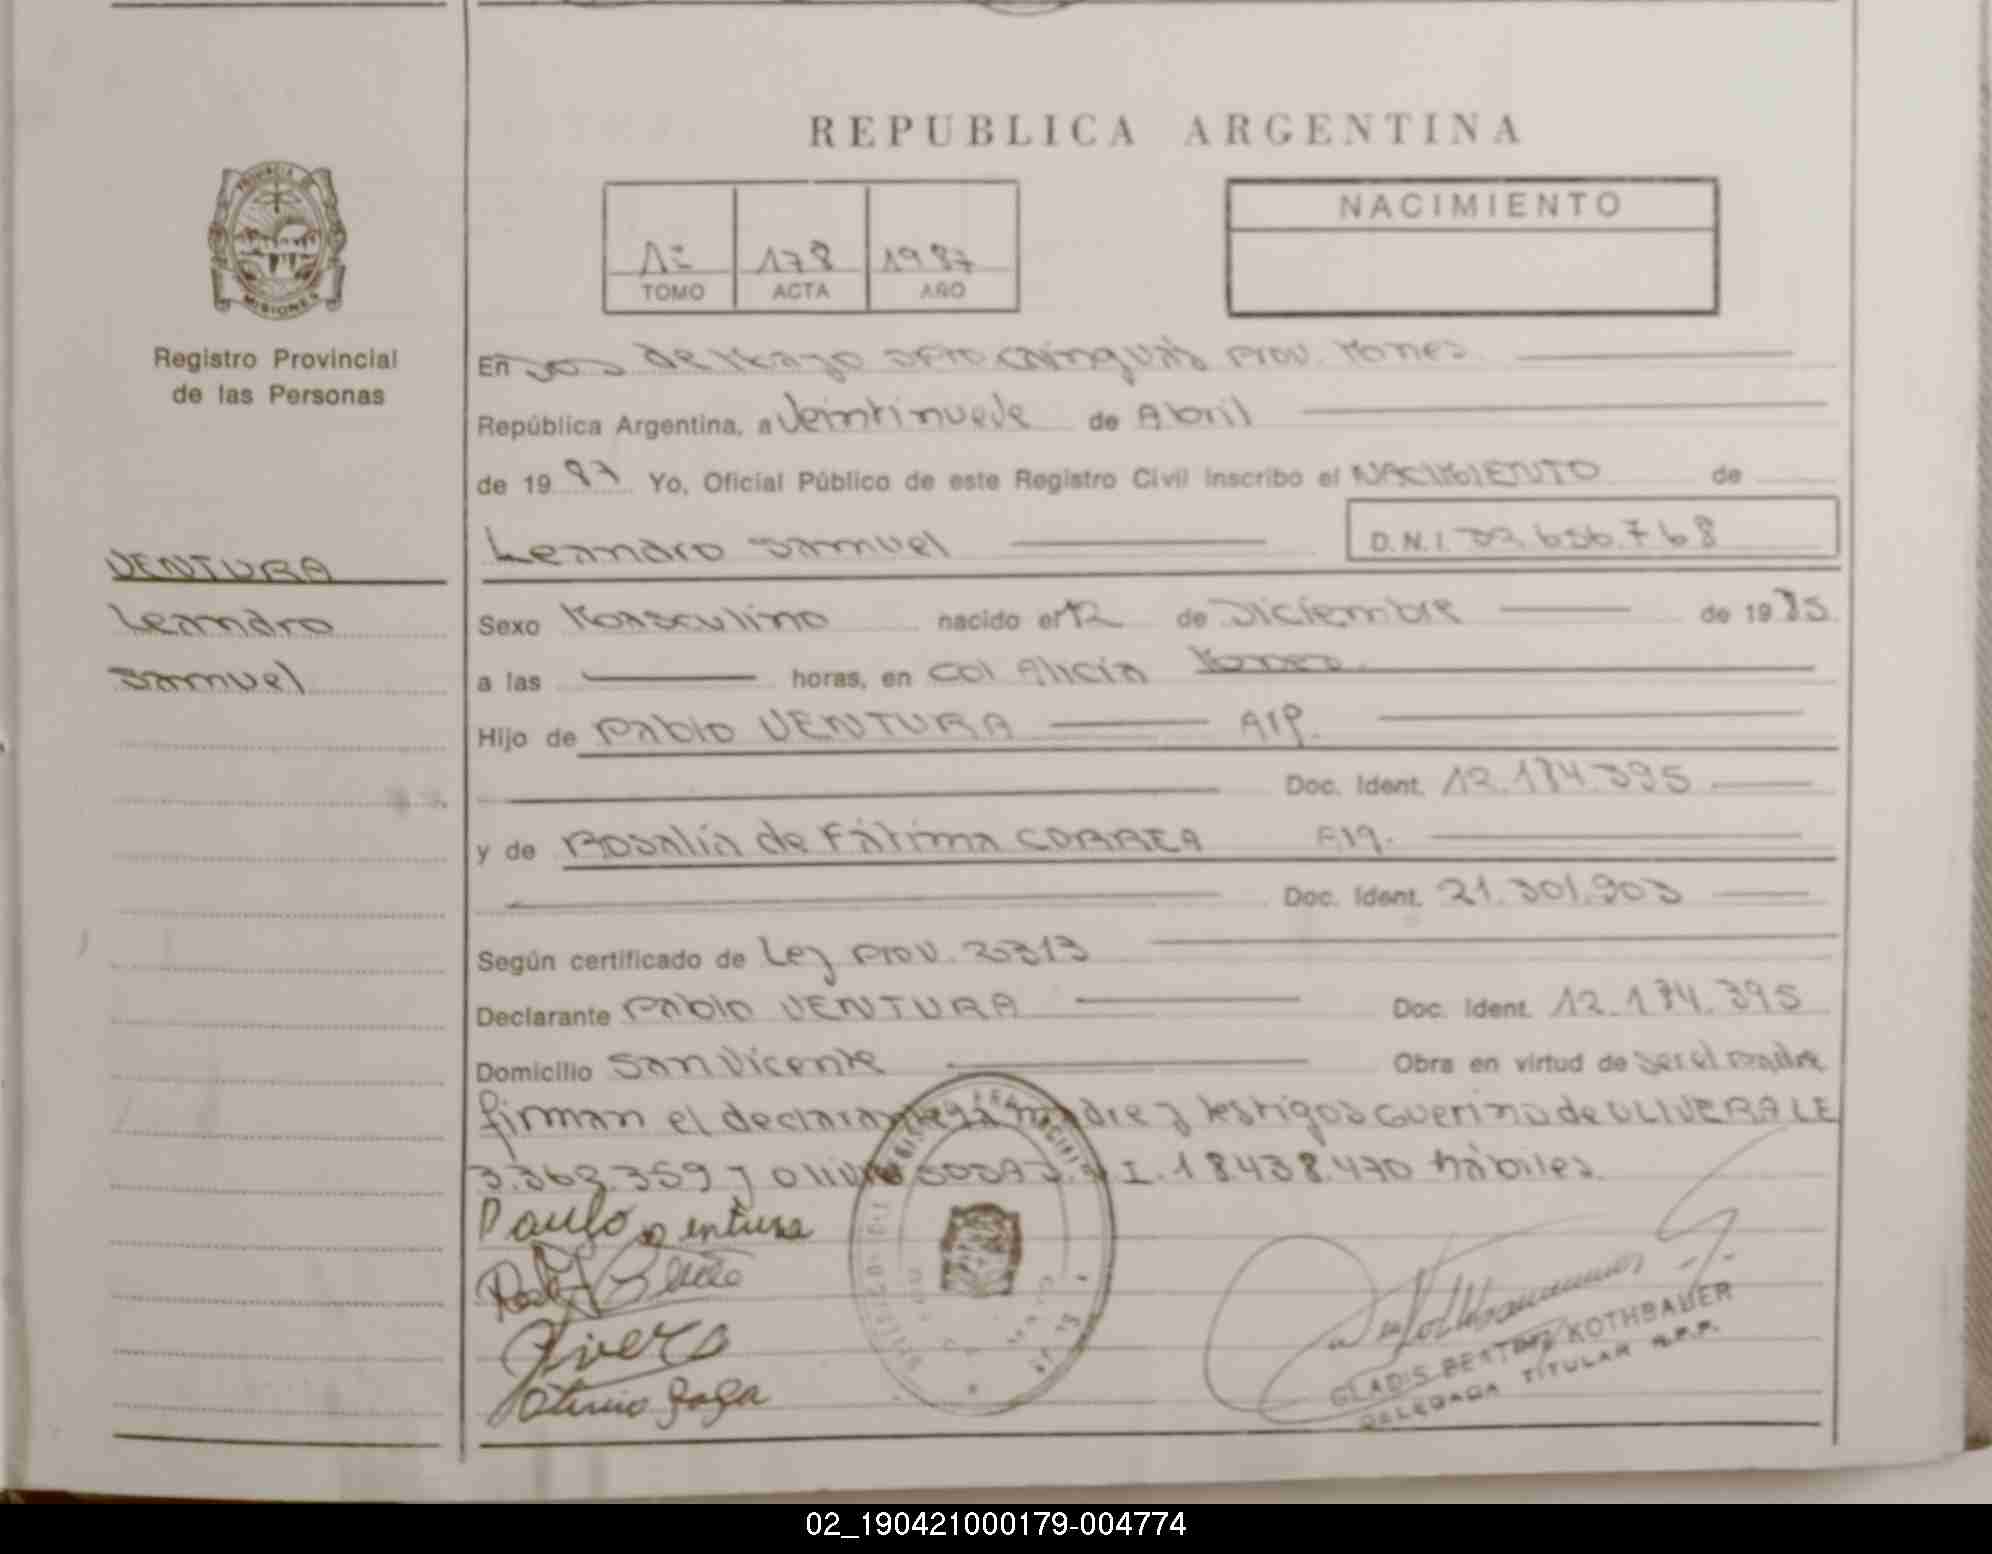 REPUBLICA ARGENTINA
PROVINCIA DE
MISIONES
Registro Provincial
de las Personas
TOMO 178 ACTA 1987 AÑO
NACIMIENTO
En Dos de Mayo Dpto Cainguás Prov. Mones.
República Argentina, a Veintinueve de Abril
de 1987 Yo, Oficial Público de este Registro Civil inscribo el NACIMIENTO de
VENTURA
Leandro
Samuel
Leandro Samuel D.N.I. 32.656.768
Sexo Masculino nacido el 12 de Diciembre de 1985
a las horas, en Col Alicia Mones.
Hijo de Pablo VENTURA Arg.
Doc. Ident. 12.184.395
y de Rosalía de Fátima CORREA Arg.
Doc. Ident. 21.301.903
Según certificado de Ley Prov. 2313
Declarante Pablo VENTURA Doc. Ident. 12.184.395
Domicilio San Vicente Obra en virtud de ser el padre
firman el declarante y la madre y testigos Guerino de OLIVERA LE
3.368.359 y I. 18.438.470 hábiles.
Paulo Ventura
GLADIS BEATRIZ KOTHBAUER
DELEGADA TITULAR R.P.P.
02_190421000179-004774